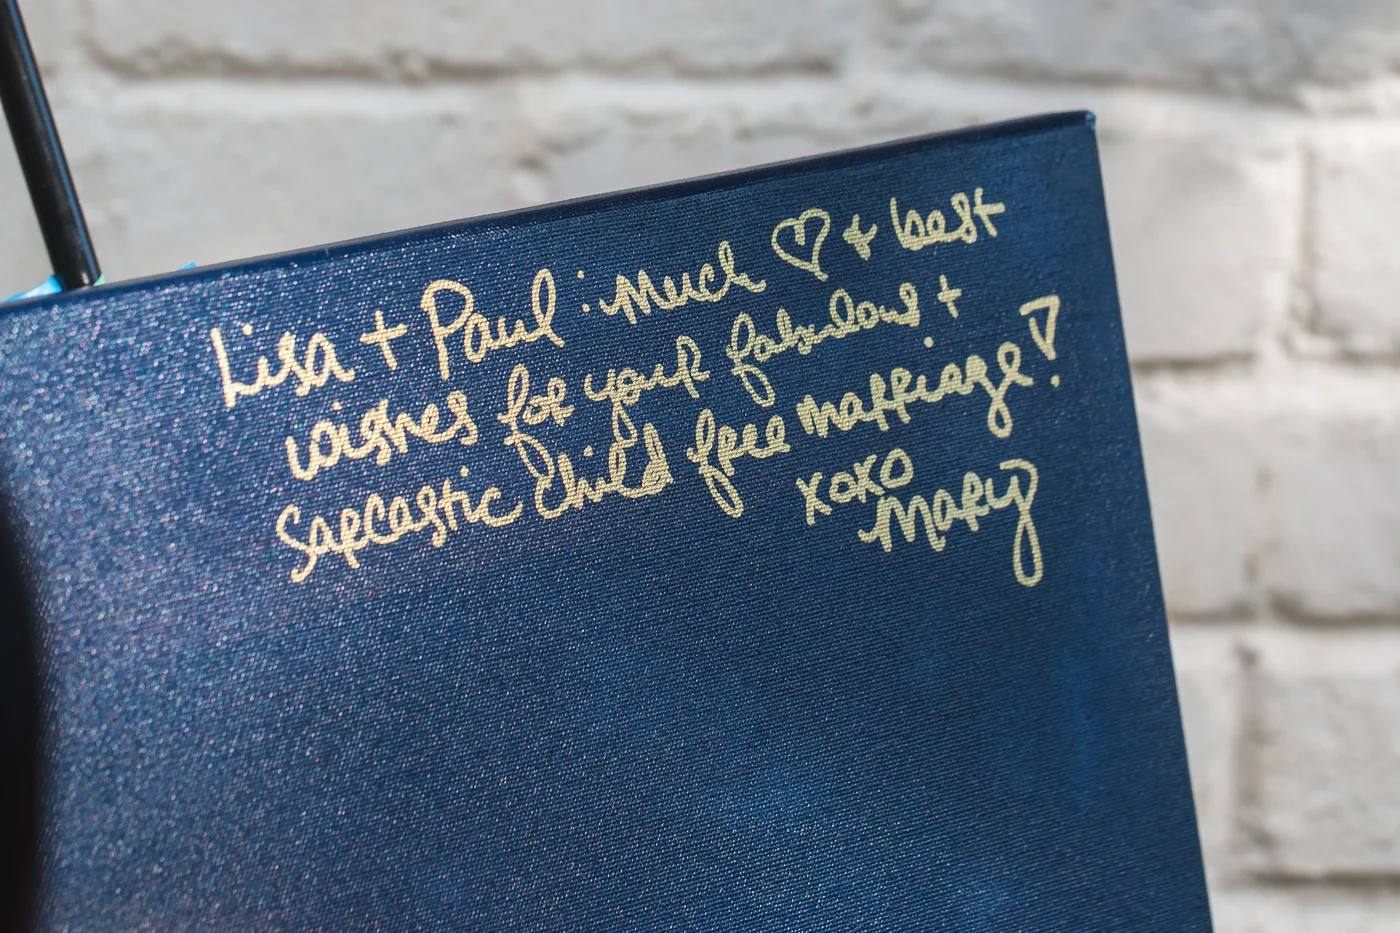 Lisa + Paul: Much ♡ + best
wishes for your fabulous +
sarcastic child free marriage!
xoxo
Mary